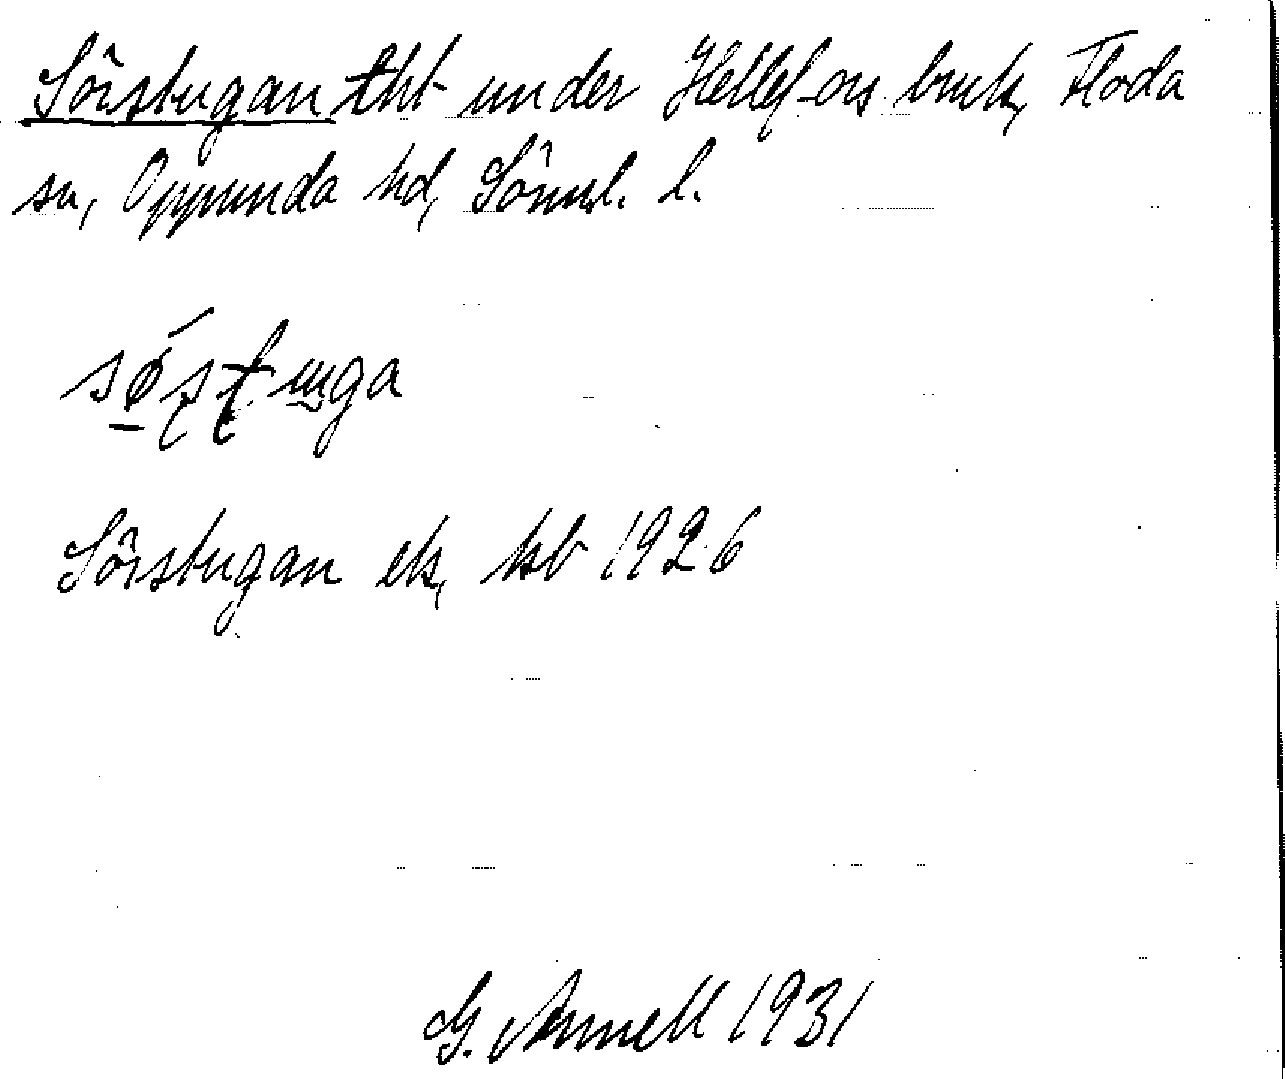 Sörstugan tht under Hellefors bruk, Floda
sn, Oppunda hd, Sörml. l.
sǿʂʈuga
Sörstugan ek, kb 1926
G. Annell 1931